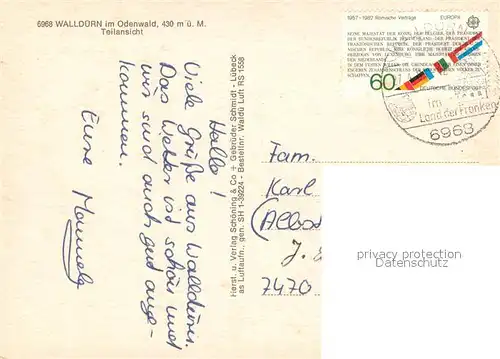 6968 WALLDÜRN im Odenwald, 430 m ü. M.
Teilansicht
Hallo!
Viele Grüße aus Walldürn.
Das Wetter ist schön und
wir sind auch gut ange-
kommen.
Eure Manuela
Herst. u. Verlag Schöning & Co + Gebrüder Schmidt - Lübeck
as Luftaufn., gen. SH 1-39224 - Bestellnr. Waldü Luft RS 1558
1957-1982 Römische Verträge EUROPA
SEINE MAJESTÄT DER KÖNIG DER BELGIER, DER PRÄSIDENT
DER BUNDESREPUBLIK DEUTSCHLAND, DER PRÄSIDENT DER
FRANZÖSISCHEN REPUBLIK, DER PRÄSIDENT DER
60
DEUTSCHE BUNDESPOST
im
Land der Franken
6968
Fam.
Karl
(Albst
J.
7470
privacy protection
watermark